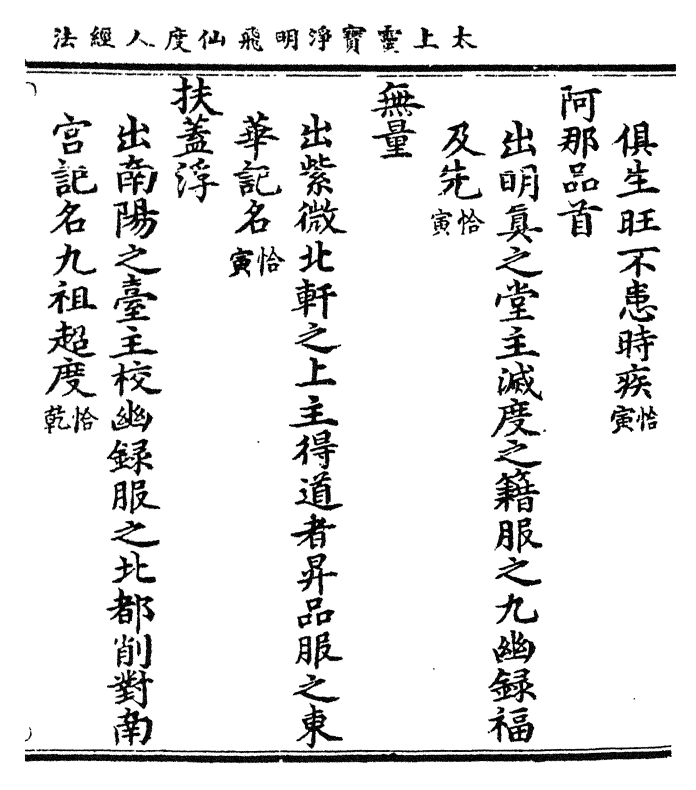 太上靈寶淨明飛仙度人經法
俱生旺不患時疾恰寅
阿那品首
出明真之堂主滅度之籍服之九幽録福
及先恰寅
無量
出紫微北軒之上主得道者昇品服之東
華記名恰寅
扶蓋浮
出南陽之臺主校幽録服之北都削對南
宮記名九祖超度恰乾